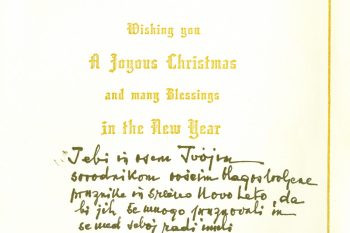 Wishing you
A Joyous Christmas
and many Blessings
in the New Year
Tebi in vsem Tvojim
sorodnikom voščim blagoslovljene
praznike in srečno Novo Leto, da
bi jih še mnogo praznovali in
se med seboj radi imeli